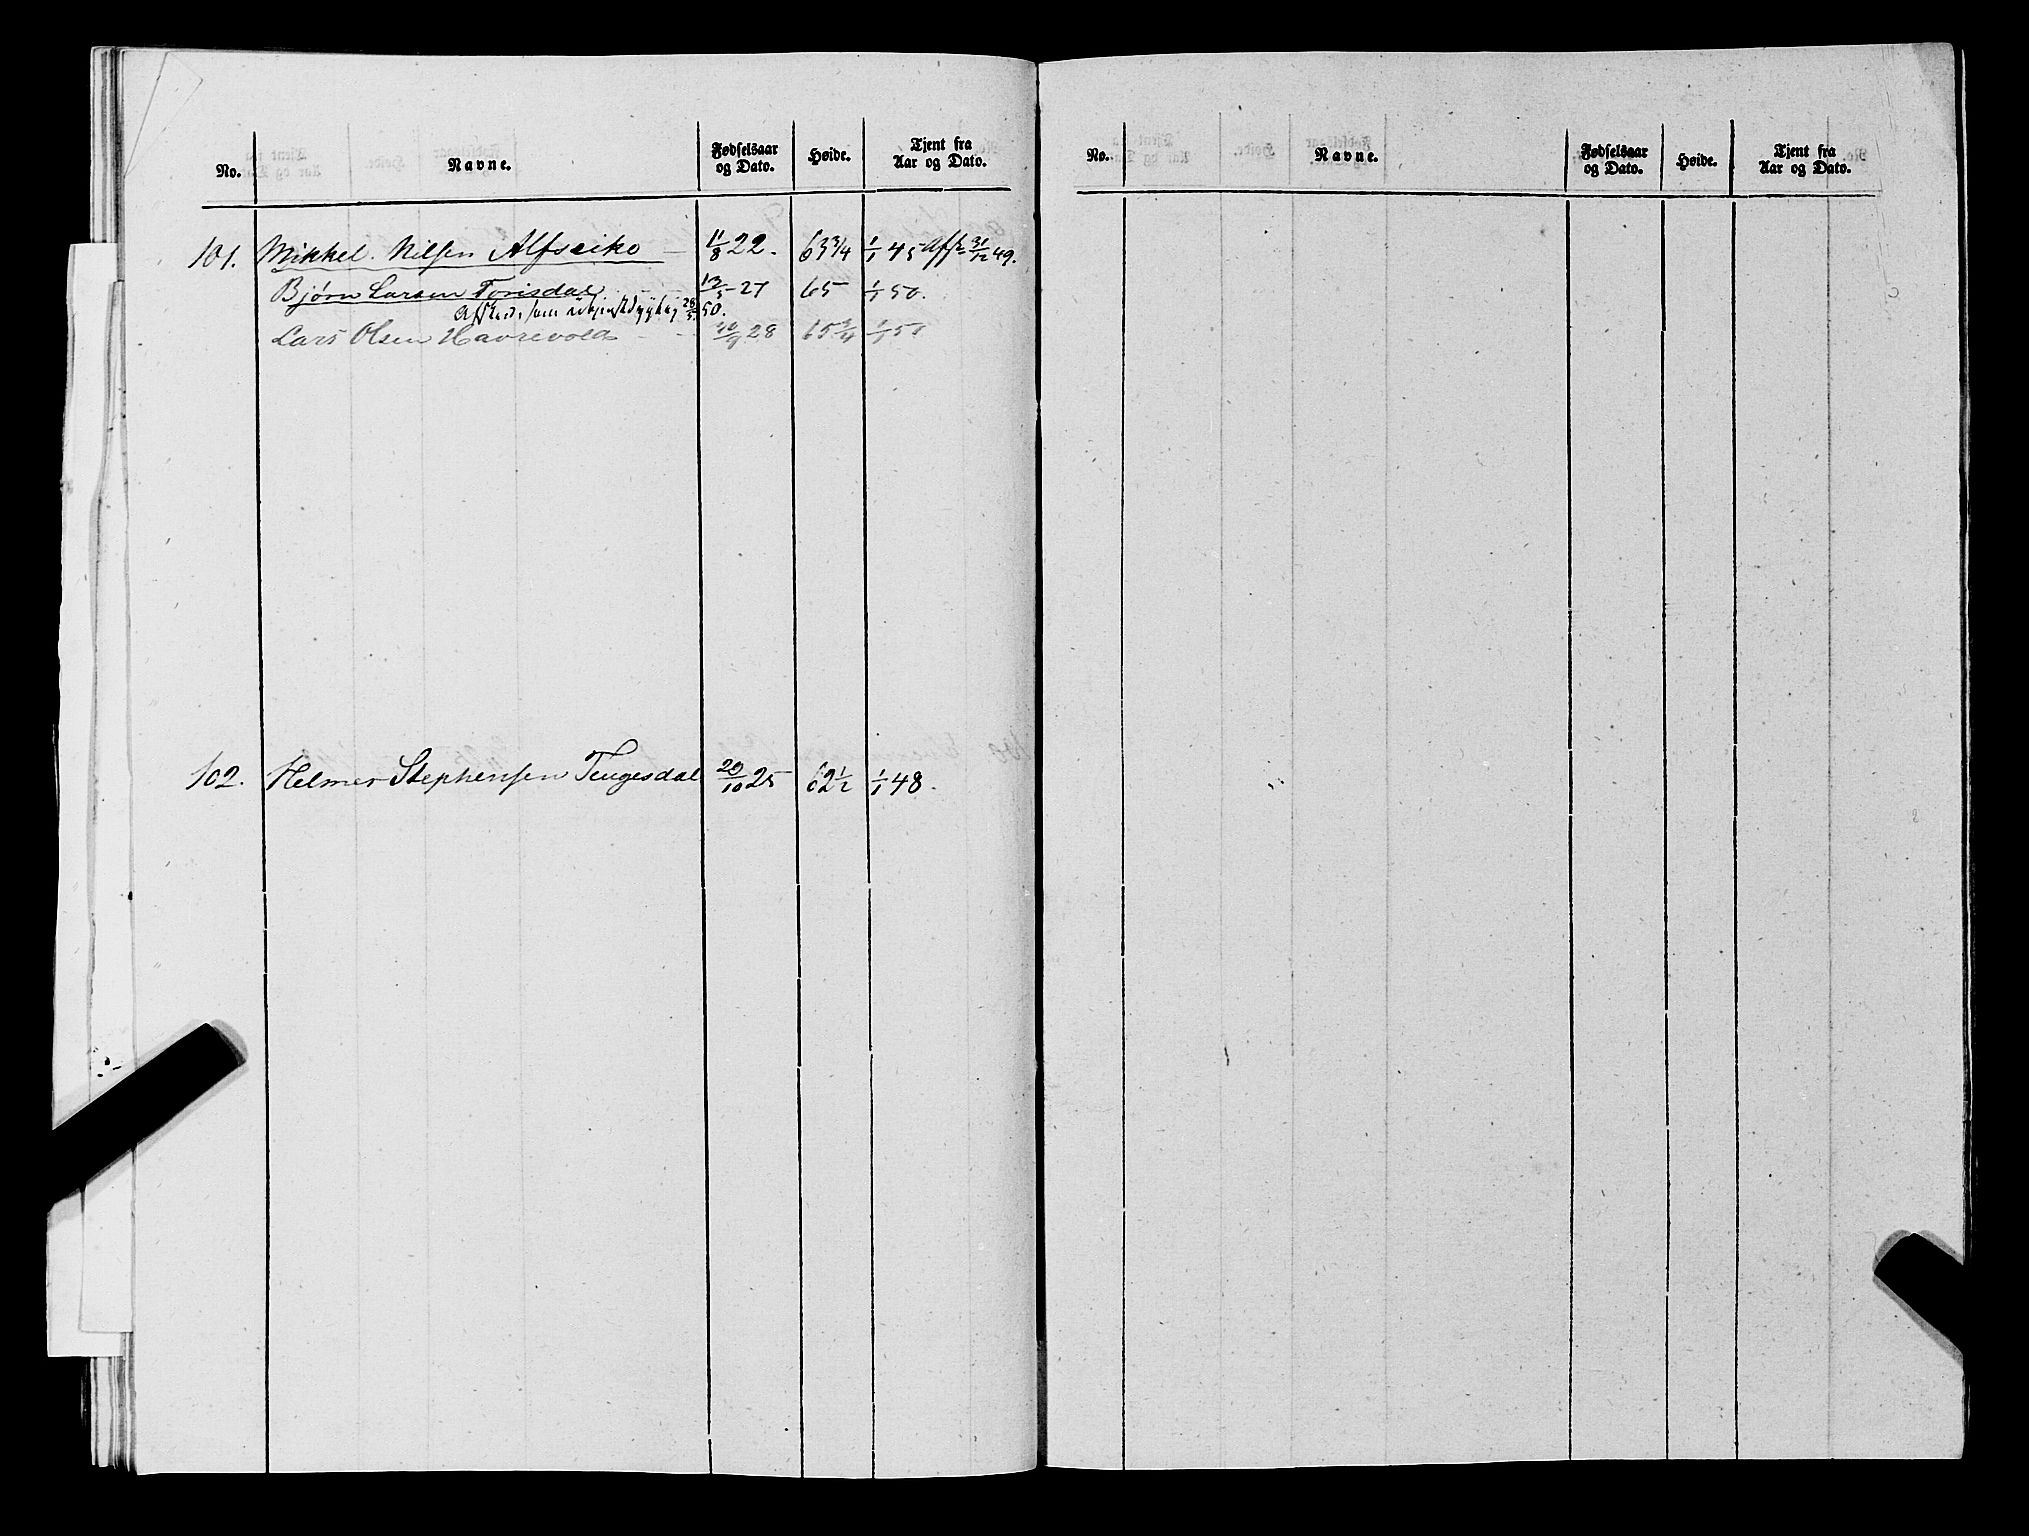 No. Navne. Fødselsaar og Dato. Høide. Tjent fra Aar og Dato.
101. Mikkel Nilsen Alfseike 11/8 22. 63 3/4 1/1 45 Afsk. 31/12 49.
Bjørn Larsen Torisdal 13/5 27 65 1/1 50.
Afsked. som utjenstdygtig 28/5 50.
Lars Olsen Havrevold 28 65 3/4 1/1 50
102. Helmer Stephensen Tengesdal 20/10 25 62 1/2 1/1 48.
No. Navne. Fødselsaar og Dato. Høide. Tjent fra Aar og Dato.